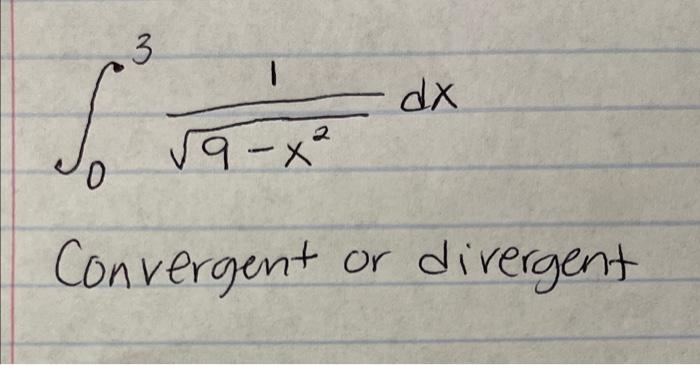 ∫₀³ 1/√(9-x²) dx
Convergent or divergent